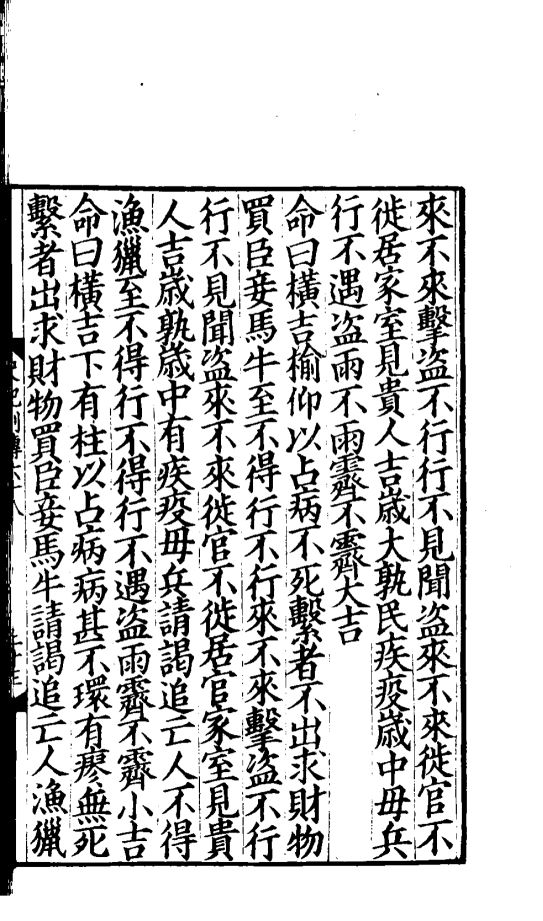 來不來擊盗不行行不見聞盗來不來徙官不
徙居家室見貴人吉歳大孰民疾疫歳中毋兵
行不遇盗雨不雨霽不霽大吉
命曰橫吉榆仰以占病不死繫者不出求財物
買臣妾馬牛至不得行不行來不來擊盗不行
行不見聞盗來不來徙官不徙居官家室見貴
人吉歳孰歳中有疾疫毋兵請謁追亡人不得
漁獵至不得行不得行不遇盗雨霽不霽小吉
命曰橫吉下有柱以占病病甚不環有瘳無死
繫者出求財物買臣妾馬牛請謁追亡人漁獵